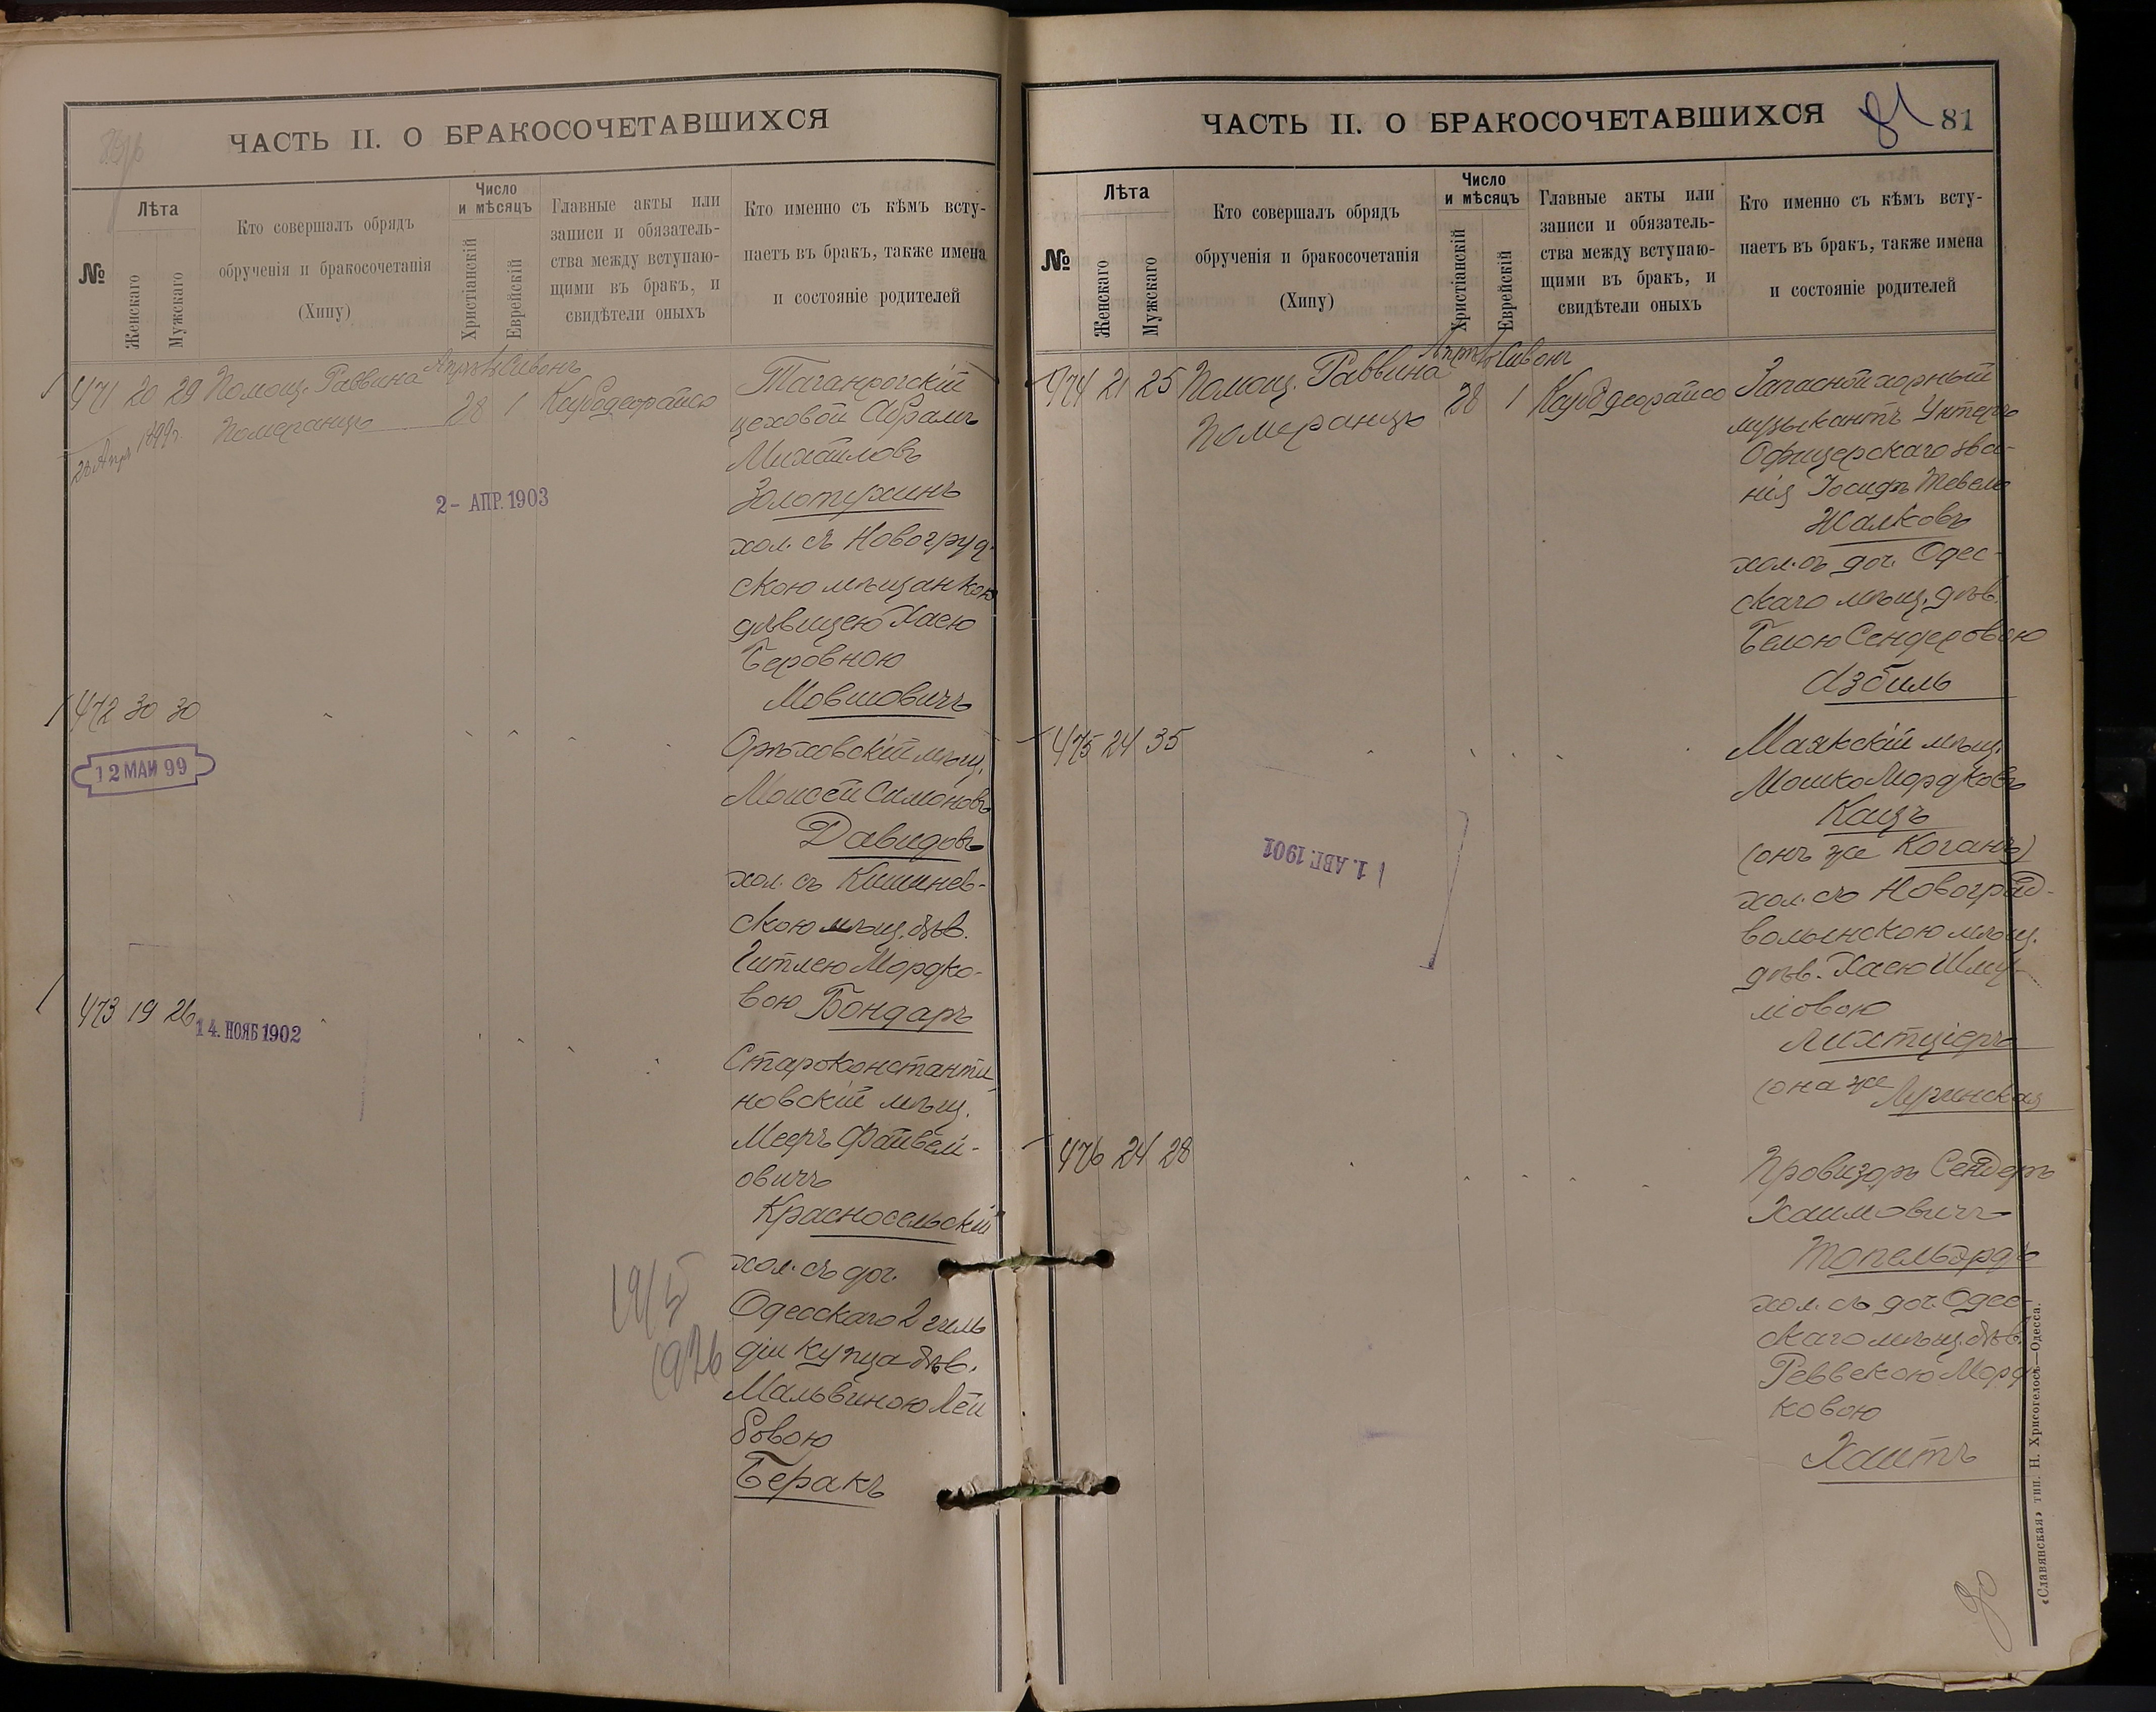 ЧАСТЬ II. О БРАКОСОЧЕТАВШИХСЯ
№
Лѣта
Женскаго
Мужскаго
Кто совершалъ обрядъ
обрученія и бракосочетанія
(Хипу)
Число
и мѣсяцъ
Христіанскій
Еврейскій
Главные акты или
записи и обязатель-
ства между вступаю-
щими въ бракъ, и
свидѣтели оныхъ
Кто именно съ кѣмъ всту-
паетъ въ бракъ, также имена
и состояніе родителей
471 20 29 Помощ. Раввина Апрѣль Сивонъ
Померанцъ 28 1
28 Апр 1899г.
2- АПР. 1903
Таганрогскій
цеховой Абрамъ
Михайловъ
Золотухинъ
хол. съ Новогруд-
скою мѣщанкою
дѣвицею Хаею
Беровною
Мовшовичъ
472 30 30
12 МАЙ 99
Орѣховскій мѣщ.
Моисей Симоновъ
Давидовъ
хол. съ Кишинев-
скою мѣщ. дѣв.
Гитлею Мордко-
вою Бондарь
473 19 26
14. НОЯБ 1902
Староконстанти
новскій мѣщ.
Мееръ Файвел-
овичъ
Красносельскій
хол. съ доч.
Одесскаго 2 гиль
діи купца дѣв.
Мальвиною Лей
бовою
Беракъ
ЧАСТЬ II. О БРАКОСОЧЕТАВШИХСЯ
81
81
№
Лѣта
Женскаго
Мужскаго
Кто совершалъ обрядъ
обрученія и бракосочетанія
(Хипу)
Число
и мѣсяцъ
Христіанскій
Еврейскій
Главные акты или
записи и обязатель-
ства между вступаю-
щими въ бракъ, и
свидѣтели оныхъ
Кто именно съ кѣмъ всту-
паетъ въ бракъ, также имена
и состояніе родителей
474 21 25 Помощ. Раввина Апрѣль Сивонъ
Померанцъ 28 1
Запасной хорный
музыкантъ Унтеръ
Офицерскаго зва-
нія Іосифъ Тевелев
Жалковъ
хол. съ доч. Одес-
скаго мѣщ. дѣв.
Белою Сендеровою
Азбиль
475 24 35
1. АВГ. 1901
Маякскій мѣщ.
Мошко Мордковъ
Кацъ
(онъ же Коганъ)
хол. съ Новоград-
волынскою мѣщ.
дѣв. Хаею Шму-
ловою
Лихтціеръ
(она же
476 24 28
Провизоръ Сендеръ
Хаимовичъ
Топельбэрдъ
хол. съ доч. Одес-
скаго мѣщ. дѣв.
Реввекою Морд
ковою
Хаитъ
«Славянская» тип. Н. Хрисогелосъ—Одесса.